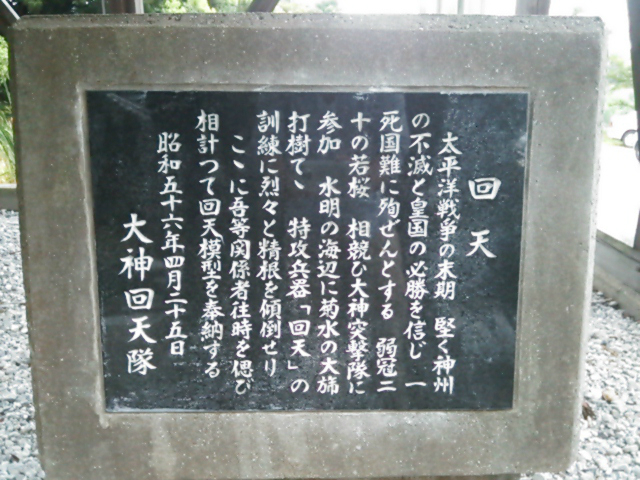 回天
太平洋戦争の末期　堅く神州
の不滅と皇国の必勝を信じ　一
死国難に殉ぜんとする　弱冠二
十の若桜　相競ひ大神突撃隊に
参加　水明の海辺に菊水の大旆
打樹てゝ　特攻兵器「回天」の
訓練に烈々と精根を傾倒せり
こゝに吾等関係者往時を偲び
相計つて回天模型を奉納する
昭和五十六年四月二十五日
大神回天隊